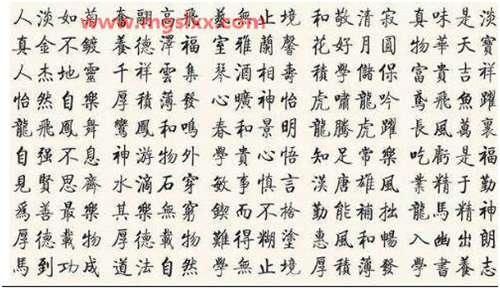 www.mgslxx.com
人淡如菊 高飛 無止境 和敬清寂 真味是淡
真金不鍍 養德澤福 室雅蘭馨 花好月圓 物華天寶
人杰地靈 千祥雲集 琴酒相壽 積學儲保 富貴吉祥
怡然自樂 厚積薄發 心曠神怡 虎嘯龍吟 鳶飛魚躍
龍飛鳳舞 鸞鳳和鳴 春和景明 龍騰虎躍 長風萬裏
自强不息 神游物外 學貴心悟 知足常樂 吃虧是福
見賢思齊 水滴石穿 敏事慎言 漢唐雄風 業精于勤
爲善最樂 其樂無窮 鍥而不捨 勤能補拙 龍馬精神
厚德載物 厚德載物 難得糊塗 惠風和暢 入幽出朗
馬到功成 道法自然 學無止境 厚積薄發 學書養志